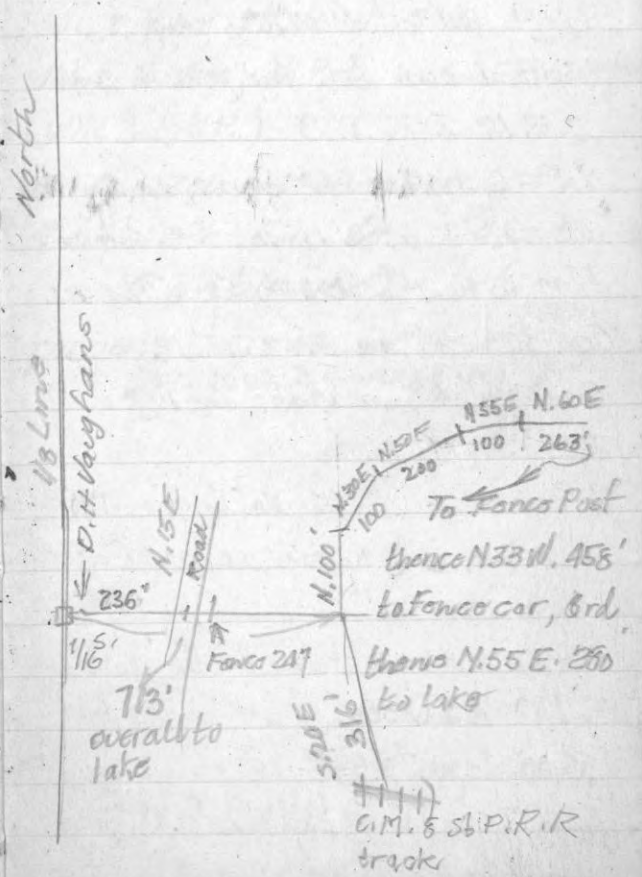 North
1/8 Line
D. H Vaughans
N. 15 E
Road
236"
1/16 s'
Fence 247
713'
overall to
lake
N. 100'
N. 30E
100
N. 50E
200
N 55 E
100
N. 60 E
263'
To Fence Post
thence N 33 W. 458'
to Fence car,
thence N. 55 E. 280
to lake
S. 20 E
316'
C. M. & St P. R. R
track